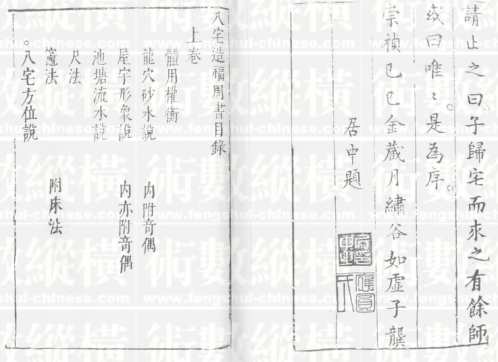 請止之曰子歸宅而求之有餘師
或曰唯〻是為序
崇禎己巳金藏月繡谷如虛子龔
居中題
八宅造福周書目錄
上卷
體用權衡
龍穴砂水說 內附奇偶
屋宇形象說 內亦附奇偶
池塘流水說
尺法
竈法 附床法
八宅方位說